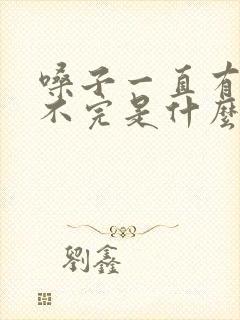 嗓子一直有
不完是什麼
劉鑫